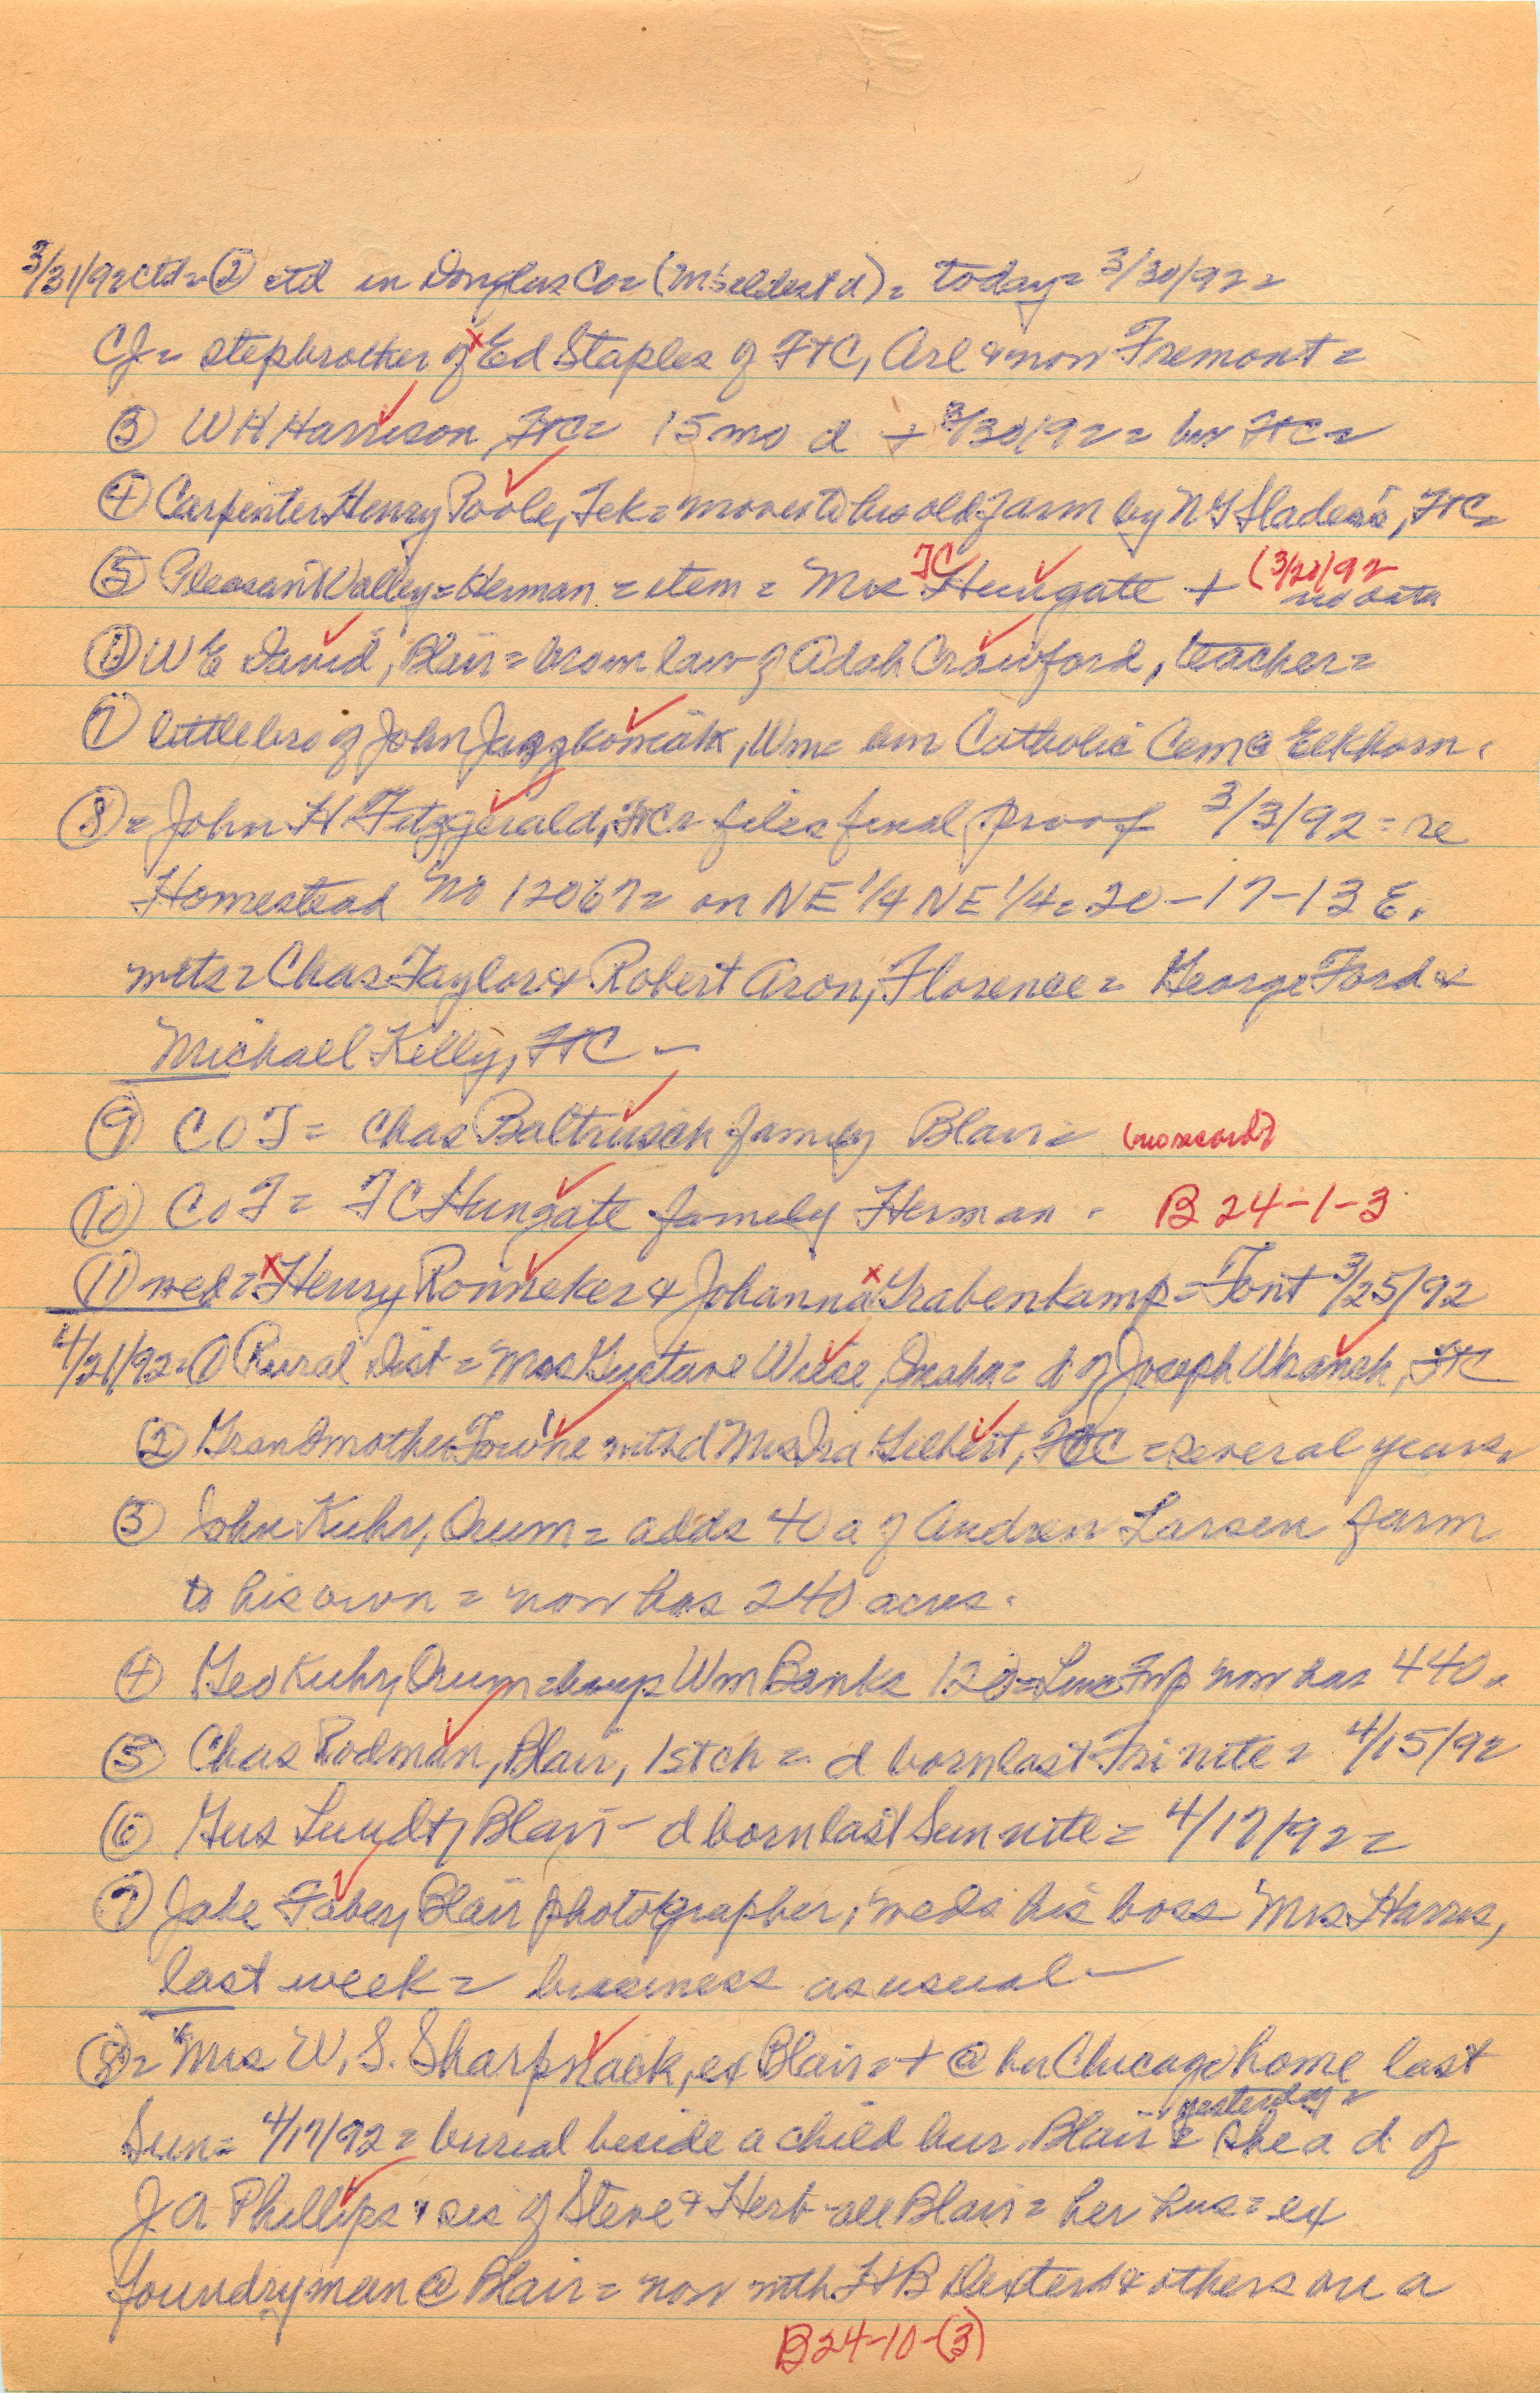 3/31/92 ctd = ② ctd in Douglas Co = (M's eldest d) = today = 3/30/92 =
CJ = stepbrother of x Ed Staples of FtC, Arl & now Fremont =
③ W H Harrison, FtC = 15 mo d + 3/30/92 = bur FtC =
④ Carpenter Henry Poole, Tek = moves to his old farm by N S Slader's, FtC =
⑤ Pleasant Valley = Herman = item = Mrs FC Hungate + (3/20/92
no data
⑥ W E David, Blair = bro in law of Adah Crawford, teacher =
⑦ little bro of John , Wm = bur Catholic Cem @ Elkhorn.
⑧ = John H Fitzgerald, FtC = files final proof 3/3/92 = re
Homestead No 12067 = on NE 1/4 NE 1/4 = 20-17-13 E.
wits = Chas Taylor & Robert Aron, Florence = George Ford &
Michael Kelly, FtC –
⑨ C O T = Chas Baltrusch family Blair = (no record)
⑩ C o T = F C Hungate family Herman. B 24-1-3
⑪ wed = x Henry Ronneker & Johanna x Grabenkamp = Font 3/25/92
4/21/92 = ① Rural Dist = Mrs Gustave Wiese, Omaha = d of Joseph , FtC
② Grandmother Towne with d Mrs Ira Gilbert, FtC = several years.
③ John Kuhr, Orum = adds 40 a of Andrew Larsen farm
to his own = now has 240 acres.
④ Geo Kuhr, Orum = buys Wm Banks 120 = Linc Twp now has 440.
⑤ Chas Rodman, Blair, 1st ch = d born last Fri nite = 4/15/92
⑥ Gus Lundt, Blair – d born last Sun nite = 4/17/92 =
⑦ Jake Faber, Blair photographer, weds his boss Mrs Harris,
last week = business as usual –
⑧ = Mrs W. S. Sharpnack, ex Blair = + @ her Chicago home last
Sun = 4/17/92 = burial beside a child bur. Blair yesterday = she a d of
J A Phillips & sis of Steve & Herb – all Blair = her hus = ex
foundryman @ Blair = now with H B Dexter & others on a
B 24-10-(3)